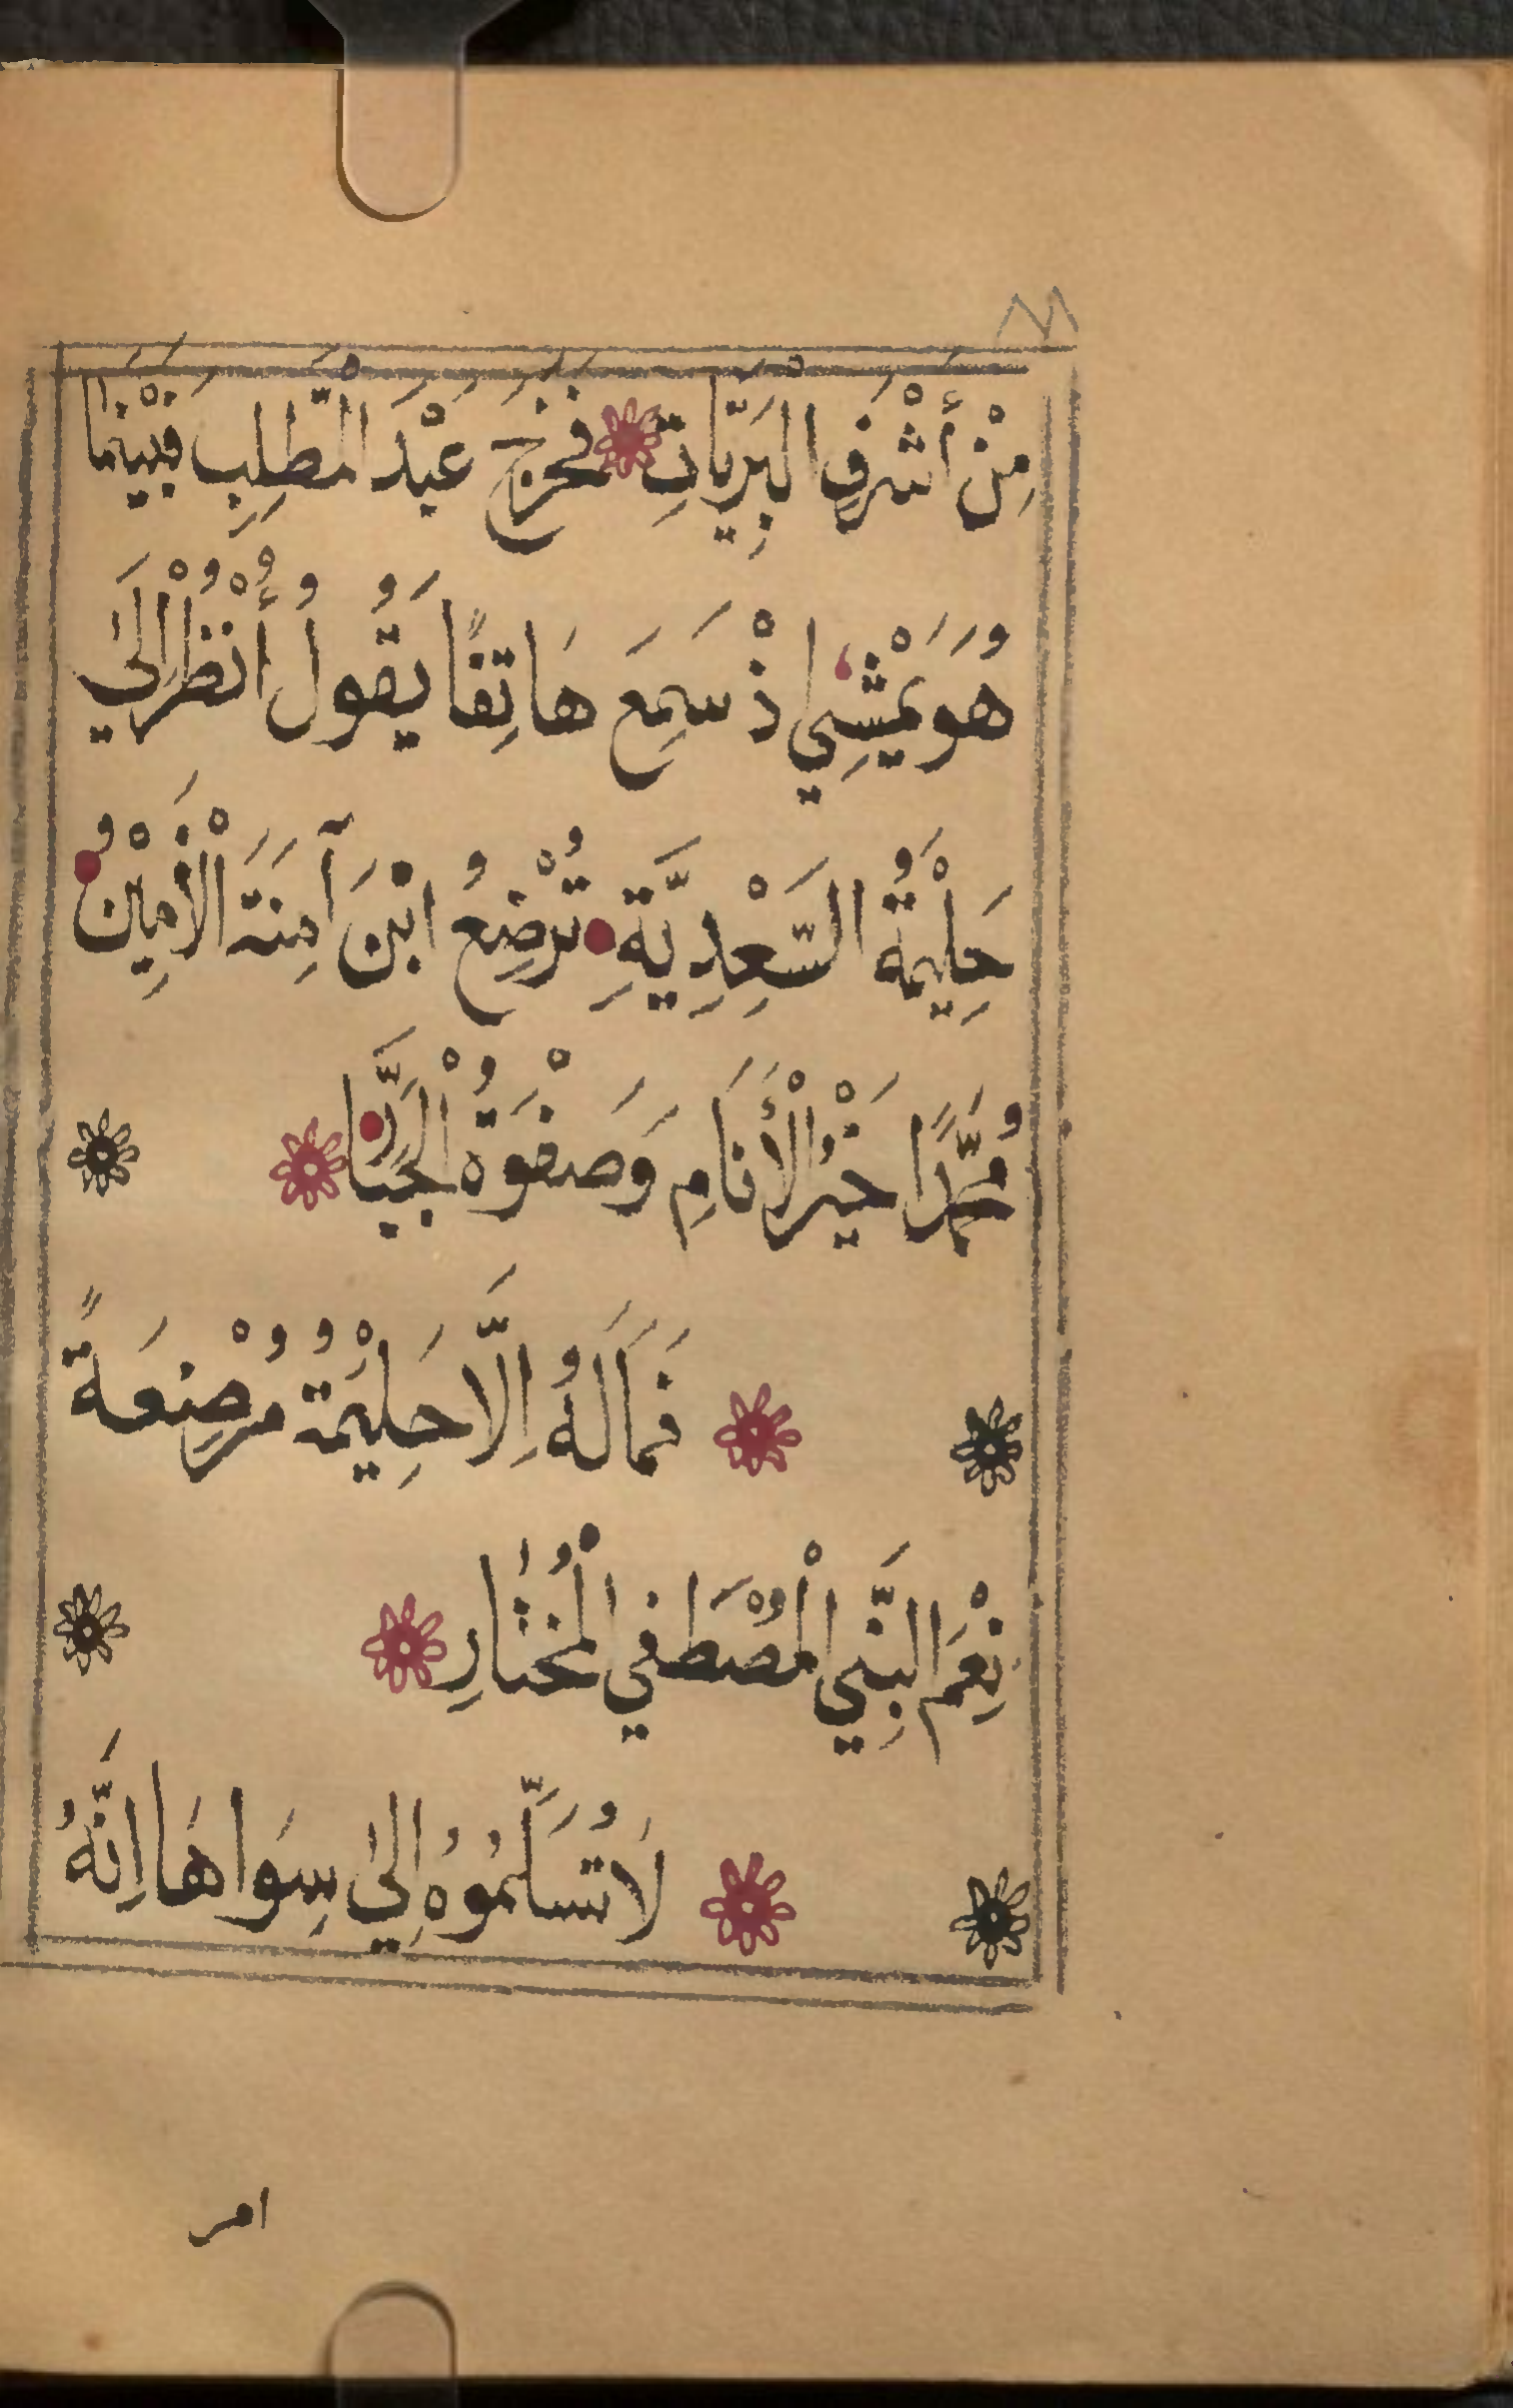 مِنْ أَشْرَفِ الْبَرِيَّاتِ فَخَرَجَ عَبْدَ الْمُطَّلِبِ فَبَيْنَمَا
هُوَ يَمْشِي إِذْ سَمِعَ هَاتِفًا يَقُولُ أُنْظُرْ إِلَىٰ
حَلِيْمَةُ السَّعْدِيَّةِ تُرْضِعُ ابْنَ آمِنَةَ الْأَمِيْنُ
مُحَمَّدًا خَيْرَ الْأَنَامِ وَصَفْوَةُ الْجَبَّارِ
فَمَالَهُ إِلَّا حَلِيْمَةُ مُرْضِعَةً
نِعْمَ النَّبِي الْمُصْطَفَي الْمُخْتَارِ
لَا تُسَلِّمُوهُ إِلَىٰ سِوَاهَا إِنَّهُ
امر